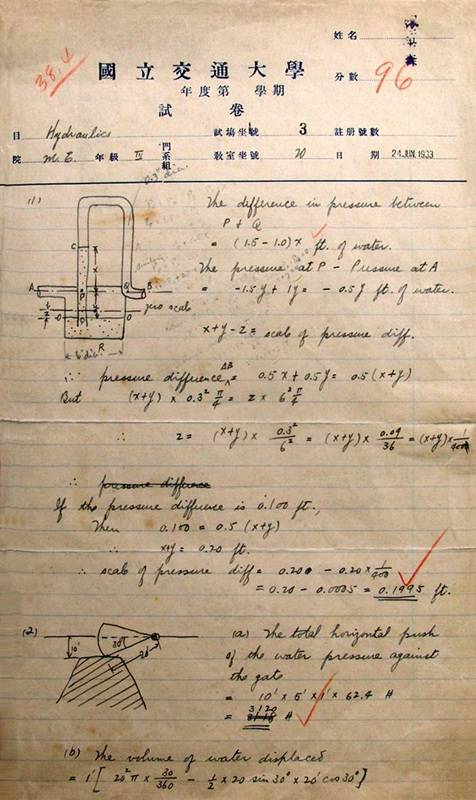 姓名
38.4
國立交通大學
分數 96
年度第 學期
試卷
目 Hydraulics 試場坐號 3 註册號數
院 M.E. 年級 IV 門系組 教室坐號 20 日期 24 JUN. 1933
(1) 0.3" dia. The difference in pressure between
P & Q
= (1.5 - 1.0) x ft. of water.
The pressure at P - Pressure at A
= -1.5y + 1y = - 0.5y ft. of water.
C
A P Q B
zero scale
O O
D
R
6" dia.
x+y-z = scale of pressure diff.
∵ pressure difference AB = 0.5x + 0.5y = 0.5(x+y)
But (x+y) × 0.3² π/4 = z × 6² π/4
∴ z = (x+y) × 0.3²/6² = (x+y) × 0.09/36 = (x+y) × 1/400
∴ pressure difference
If the pressure difference is 0.100 ft.,
Then 0.100 = 0.5 (x+y)
∴ x+y = 0.20 ft.
∴ scale of pressure diff = 0.200 - 0.20 × 1/400
= 0.20 - 0.0005 = 0.1995 ft.
(2) (a) The total horizontal push
10' 30° 20'
of the water pressure against
the gate
= 10' × 5' × 1' × 62.4 #
= 3120 #
(b) The volume of water displaced
= 1' [ 20² π × 30/360 - 1/2 × 20 sin 30° × 20' cos 30° ]